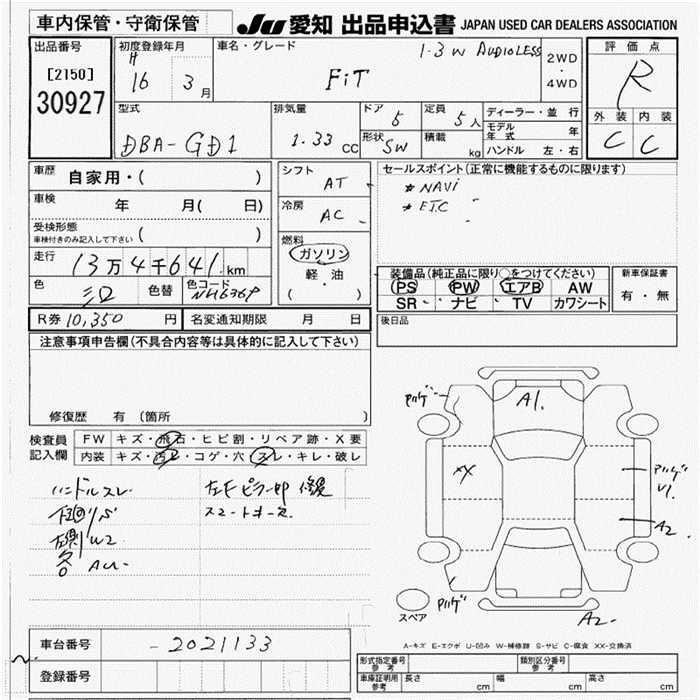 車内保管・守衛保管
JU 愛知 出品申込書 JAPAN USED CAR DEALERS ASSOCIATION
出品番号
[2150]
30927
初度登録年月
H
16 3月
車名・グレード
1.3 W AUDIOLESS
FiT
2WD
・
4WD
評価点
R
外装 内装
C C
型式
DBA-GD1
排気量
1.33 CC
ドア
5
定員
5人
形状 SW
積載
kg
ディーラー・並行
モデル年式 年
ハンドル 左・右
車歴
自家用・( )
車検
年 月( 日)
受検形態
車検付きのみ記入して下さい ( )
走行
13万4千641km
色
色替
色コード
NH636P
シフト
AT
冷房
AC
燃料
ガソリン
軽・油
( ・ )
セールスポイント(正常に機能するものに限ります)
* NAVi
* ETC
装備品(純正品に限り○をつけてください)
PS PW エアB AW
SR ナビ TV カワシート
新車保証書
有・無
R券 10,350 円
名変通知期限 月 日
後日品
注意事項申告欄(不具合内容等は具体的に記入して下さい)
修復歴 有(箇所 )
検査員
記入欄
FW キズ・飛石・ヒビ割・リペア跡・X要
内装 キズ・汚レ・コゲ・穴・スレ・キレ・破レ
ハンドルスレ
左F ピラー部 修復
スマートキー
A1
XX
U1
A2
A2
スペア
A-キズ E-エクボ U-凹み W-補修跡 S-サビ C-腐食 XX-交換済
車台番号
- 2021133
登録番号
形式指定番号
参考
類別区分番号
参考
車庫証明用
参考
長さ cm 幅 cm 高さ cm